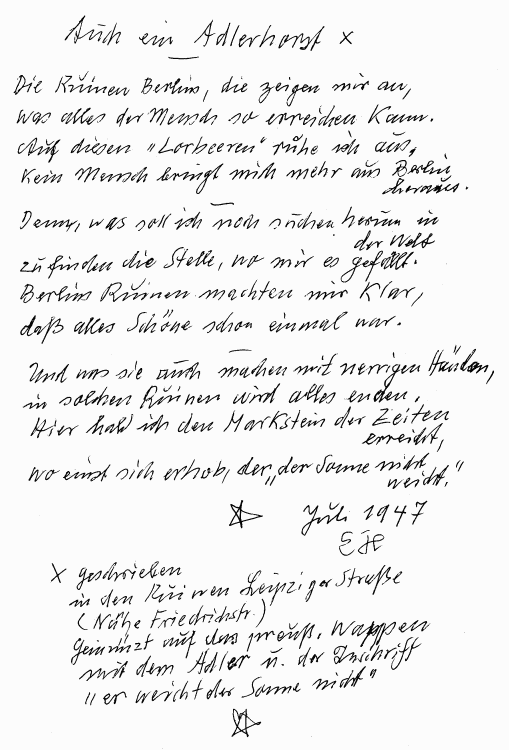 Auch ein Adlerhorst x
Die Ruinen Berlins, die zeigen mir an,
was alles der Mensch so erreichen kann.
Auf diesen „Lorbeeren" ruhe ich aus,
kein Mensch bringt mich mehr aus Berlin
heraus.
Denn, was soll ich noch suchen herum in
der Welt
zu finden die Stelle, wo mir es gefällt.
Berlins Ruinen machten mir klar,
daß alles Schöne schon einmal war.
Und was sie auch machen mit nervigen Händen,
in solchen Ruinen wird alles enden.
Hier hab ich den Markstein der Zeiten
erreicht,
wo einst sich erhob, der „der Sonne nicht
weicht."
Juli 1947
EH
x geschrieben
in den Ruinen Leipziger Straße
(Nähe Friedrichstr.)
Gemünzt auf das preuß. Wappen
mit dem Adler u. der Inschrift
„er weicht der Sonne nicht"